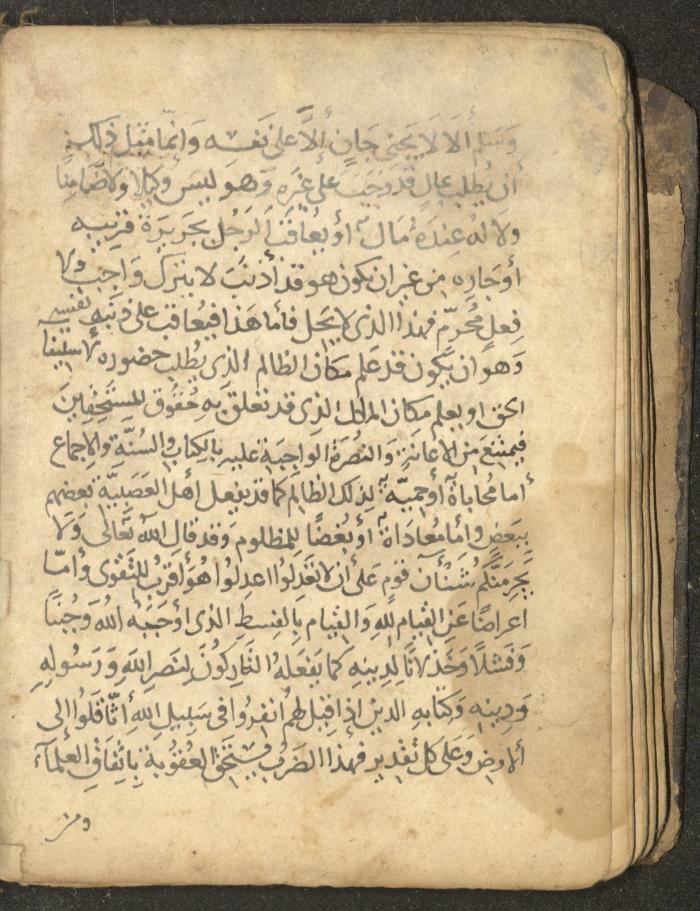 وسلم ألا لا يجني جان إلا على نفسه وإنما مثل ذلك
أن يطلب بمال قد وجب على غيره وهو ليس وكيلا ولا ضامنا
ولا له عنده مال أو يعاقب الرجل بجريرة قريبه
أو جاره من غير ان يكون هو قد أذنب لا بترك واجب ولا
فعل محرم فهذا الذي لا يحل فأما هذا فيعاقب على ذنب نفسه
وهو ان يكون قد علم مكان الظالم الذي يطلب حضوره لاستيفا
الحق او يعلم مكان المال الذي قد تعلق به حقوق المستحقين
فيمتنع من الاعانة والنصرة الواجبة عليه بالكتاب والسنة والاجماع
أما محاباة أو حمية لذلك الظالم كما قد يفعل أهل العصبية بعضهم
ببعض وأما معاداة أو بغضا للمظلوم وقد قال الله تعالى ولا
يجرمنكم شنئان قوم على أن لا تعدلوا اعدلوا هو أقرب للتقوى وأمّا
اعراضا عن القيام لله والقيام بالقسط الذي أوجبه الله وجبنا
وفشلا وخذلانا لدينه كما يفعله التاركون لنصر الله ورسوله
ودينه وكتابه الذين إذا قيل لهم انفروا في سبيل الله أثّاقلوا الى
ألارض وعلى كل تقدير فهذا الضرب يستحق العقوبة باتفاق العلمآء
ومن